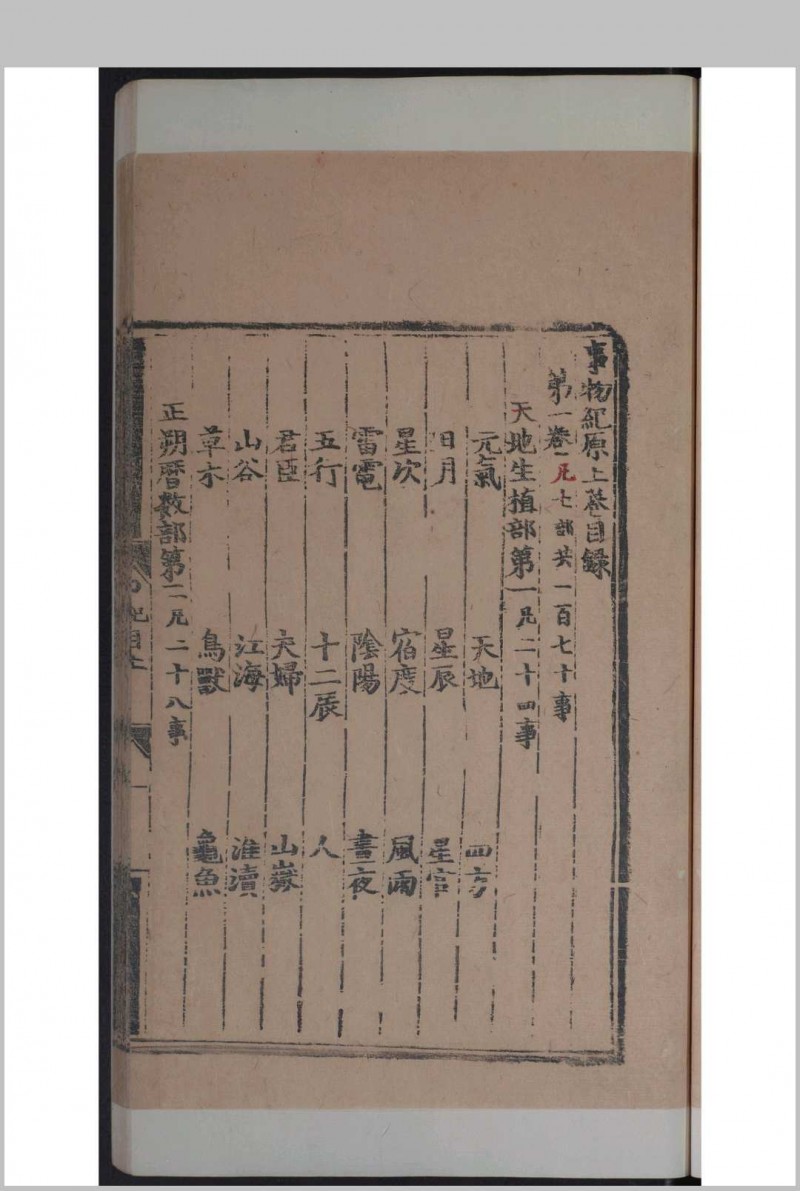 事物紀原上卷目録
第一卷凡七部共一百七十事
天地生植部第一凡二十四事
元氣 天地 四方
日月 星辰 星官
星次 宿度 風雨
雷電 陰陽 晝夜
五行 十二辰 人
君臣 夫婦 山嶽
山谷 江海 淮瀆
草木 鳥獸 龜魚
正朔曆数部第二凡二十八事